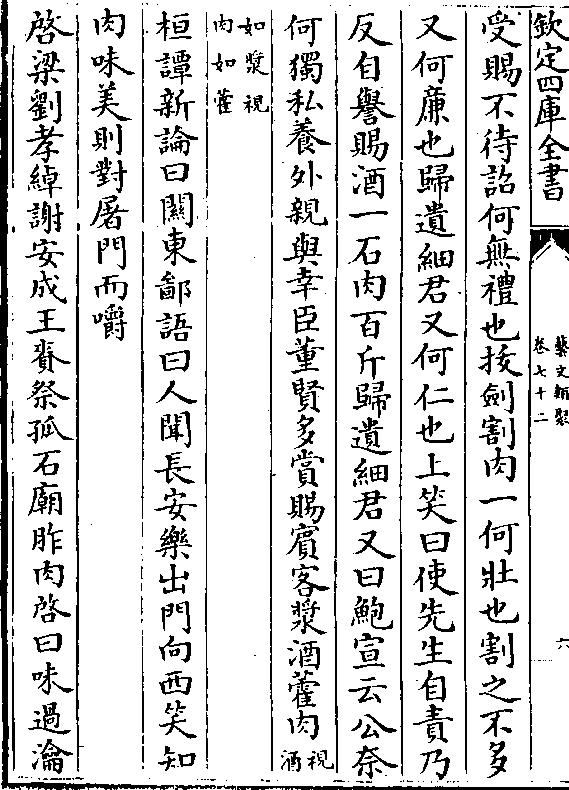 欽定四庫全書
藝文類聚
卷七十二
六
受賜不待詔何無禮也拔劍割肉一何壯也割之不多
又何廉也歸遺細君又何仁也上笑曰使先生自責乃
反自譽賜酒一石肉百斤歸遺細君又曰鮑宣云公奈
何獨私養外親與幸臣董賢多賞賜賓客漿酒藿肉視酒
如漿視
肉如藿
桓譚新論曰關東鄙語曰人聞長安樂出門向西笑知
肉味美則對屠門而嚼
啓梁劉孝綽謝安成王賚祭孤石廟胙肉啓曰味過瀹